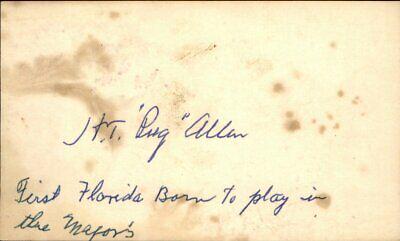 H.T. "Pug" Allen
First Florida Born to play in
the Major's